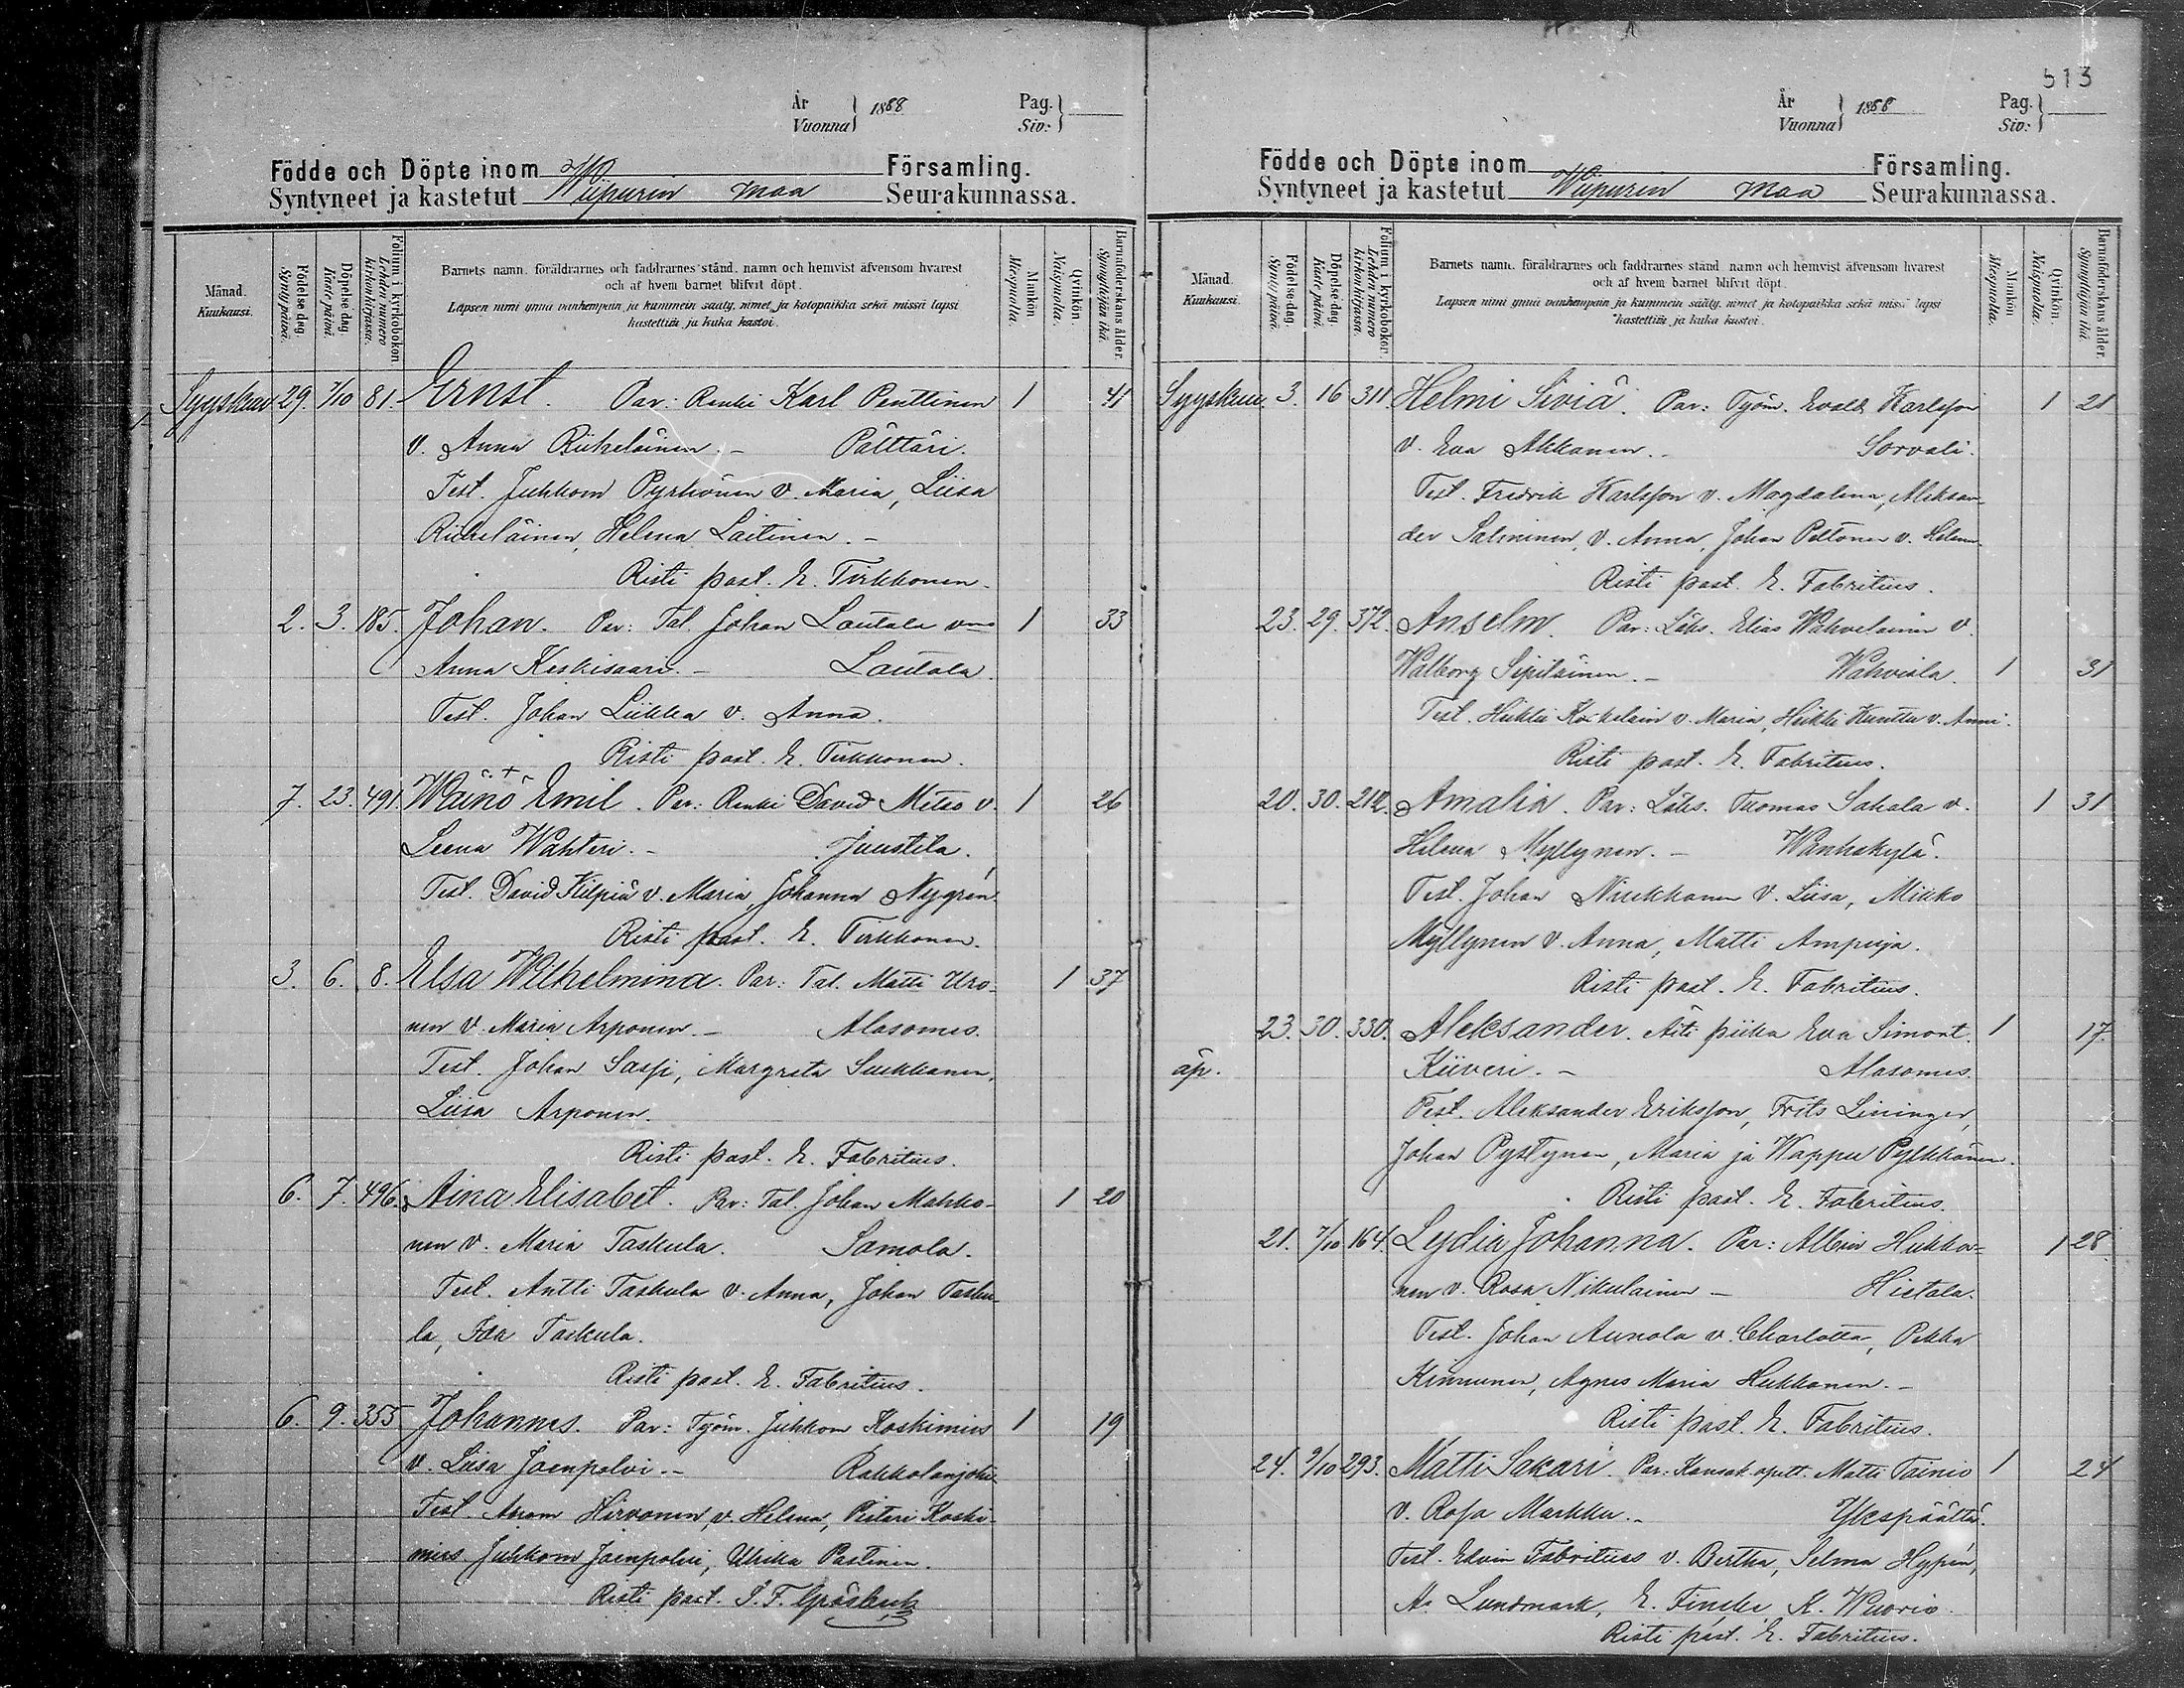 År
Vuonna 1888
Pag.
Siv:
Födde och Döpte inom Församling.
Syntyneet ja kastetut Wiipurin maa Seurakunnassa.
Månad. Kuukausi.
Födelse-dag. Syntypäivä.
Döpelse-dag. Kaste päivä.
Folium i kyrkoboken. Lehden numero kirkonkirjassa.
Barnets namn, föräldrarnes och faddrarnes stånd, namn och hemvist äfvensom hvarest
och af hvem barnet blifvit döpt.
Lapsen nimi ynnä vanhempain ja kummein sääty, nimet ja kotopaikka sekä missä lapsi
kastettiin ja kuka kastoi.
Mankön. Miespuolia.
Qvinkön. Naispuolia.
Barnaföderskans ålder. Synnyttäjän ikä.
Syyskuu 29. 7/10 81. Ernst. Par: Renki Karl Penttinen 1 41
v. Anna Riikeläinen.- Pälttäri.
Test. Juhkom Pyrhönen v. Maria, Liisa
Riikeläinen, Helena Laitinen.-
Risti past. E. Tirkkonen.
2. 3. 185. Johan. Par: Tal. Johan Lautala vmo 1 33
Anna Keskisaari.- Lautala.
Test. Johan Liikka v. Anna.
Risti past. E. Tirkkonen.
7. 23. 491. Wäinö Emil. Par: Renki David Mitso v. 1 26
Leena Wahteri.- Juustila.
Test. David Kilpiä v. Maria, Johanna Nygrén.
Risti past. E. Tirkkonen.
3. 6. 8. Elsa Wilhelmina. Par: Tal. Matti Uro- 1 37
nen v. Maria Arponen.- Alasomes.
Test. Johan Saspi, Margreta Suikkanen,
Liisa Arponen.
Risti past. E. Fabritius.
6. 7. 496. Aina Elisabet. Par: Tal. Johan Mahko- 1 20
nen v. Maria Taskula. Samola.
Test. Antti Taskula v. Anna, Johan Tasku-
la, Ida Taskula.
Risti past. E. Fabritius.
6. 9. 355. Johannes. Par: Työm. Juhkom Koskimies 1 19
v. Liisa Jäenpolvi.- Rakkolanjoki
Test. Aram Hirvonen v. Helena, Pietari Koski-
mies Juhkom Jäenpolvi, Ulrika Pastinen.
Risti past. S. F. Gräsbeck
513
År
Vuonna 1888
Pag.
Siv:
Födde och Döpte inom Församling.
Syntyneet ja kastetut Wiipurin maa Seurakunnassa.
Månad. Kuukausi.
Födelse-dag. Syntypäivä.
Döpelse-dag. Kaste päivä.
Folium i kyrkoboken. Lehden numero kirkonkirjassa.
Barnets namn, föräldrarnes och faddrarnes stånd, namn och hemvist äfvensom hvarest
och af hvem barnet blifvit döpt.
Lapsen nimi ynnä vanhempain ja kummein sääty, nimet ja kotopaikka sekä missä lapsi
kastettiin ja kuka kastoi.
Mankön. Miespuolia.
Qvinkön. Naispuolia.
Barnaföderskans ålder. Synnyttäjän ikä.
Syyskuu. 3. 16 311. Helmi Siviä. Par: Työm. Evald Karlsson 1 21
v. Eva Akkanen.- Sorvali.
Test. Fredrik Karlsson v. Magdalena, Aleksan-
der Salminen, v. Anna, Johan Peltonen v. Helena
Risti past. E. Fabritius.
23. 29. 372. Anselm. Par: Läks. Elias Wahvelainen v.
Walborg Sipiläinen.- Wahviala. 1 31
Test. Heikki Koskelain v. Maria, Heikki Kunttu v. Anni.
Risti past. E. Fabritius.
20. 30. 212. Amalia. Par: Läks. Tuomas Sakala v. 1 31
Helena Myllynen.- Wanhakylä.
Test. Johan Niukkanen v. Liisa, Mikko
Myllynen v. Anna, Matti Ampuja.
Risti past. E. Fabritius.
23. 30. 330. Aleksander. Äiti piika Eva Simont. 1 17.
äp. Kiiveri.- Alasomes.
Test. Aleksander Eriksson, Frits Lininger,
Johan Pystynen, Maria ja Wappu Pylkkänen.
Risti past. E. Fabritius.
21. 7/10 164. Lydia Johanna. Par: Albin Hukko- 1 28
nen v. Rosa Nikulainen - Hietala.
Test. Johan Aunola v. Charlotta, Pekka
Kinnunen, Agnes Maria Hukkonen.-
Risti past. E. Fabritius.
24. 9/10 293. Matti Sakari. Par: Kansak. opett. Matti Tainio 1 24
v. Rosa Markku.- Ykspäältä.
Test. Edvin Fabritius v. Bertha, Selma Hypén,
A. Lundmark, E. Finska K. Wuorio.
Risti past. E. Fabritius.